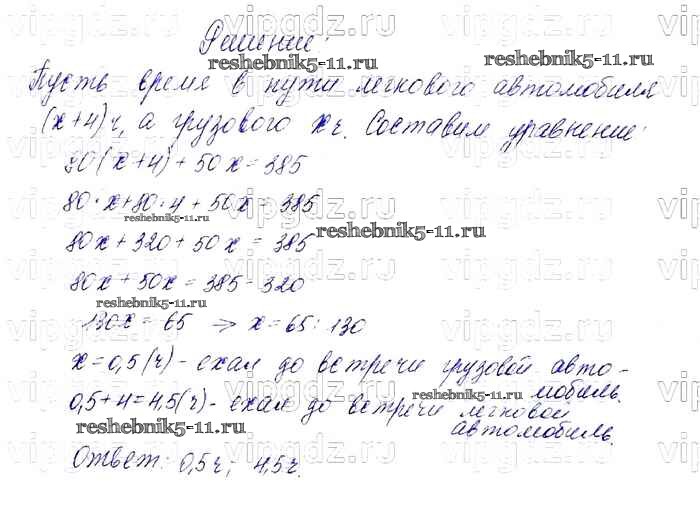 Решение:
Пусть время в пути легкового автомобиля
(x+4)ч, а грузового xч. Составим уравнение:
80(x+4)+50x=385
80·x+80·4+50x=385
80x+320+50x=385
80x+50x=385-320
130x=65 => x=65:130
x=0,5(ч)-ехал до встречи грузовой авто-
мобиль.
0,5+4=4,5(ч)-ехал до встречи легковой
автомобиль.
Ответ: 0,5ч; 4,5ч.
reshebnik5-11.ru
reshebnik5-11.ru
reshebnik5-11.ru
reshebnik5-11.ru
reshebnik5-11.ru
reshebnik5-11.ru
reshebnik5-11.ru
vipgdz.ru